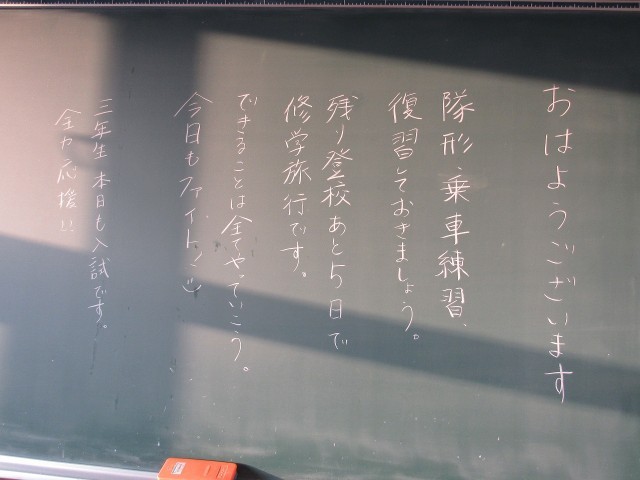 おはようございます
隊形・乗車練習、
復習しておきましょう。
残り登校あと5日で
修学旅行です。
できることは全てやっていこう。
今日もファイト!
三年生 本日も入試です。
全力応援!!